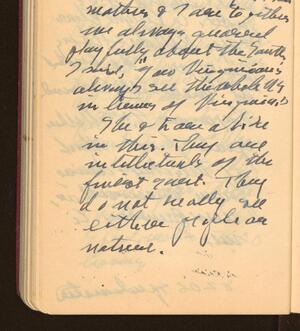 mother & I are together
we always quarrel
playfully about the South
I said, "you Virginians
always see the whole US
in terms of Virginia."
She & are alike
in this. They are
intellectuals of the
finest quest. They
do not really see
either people or
nature.